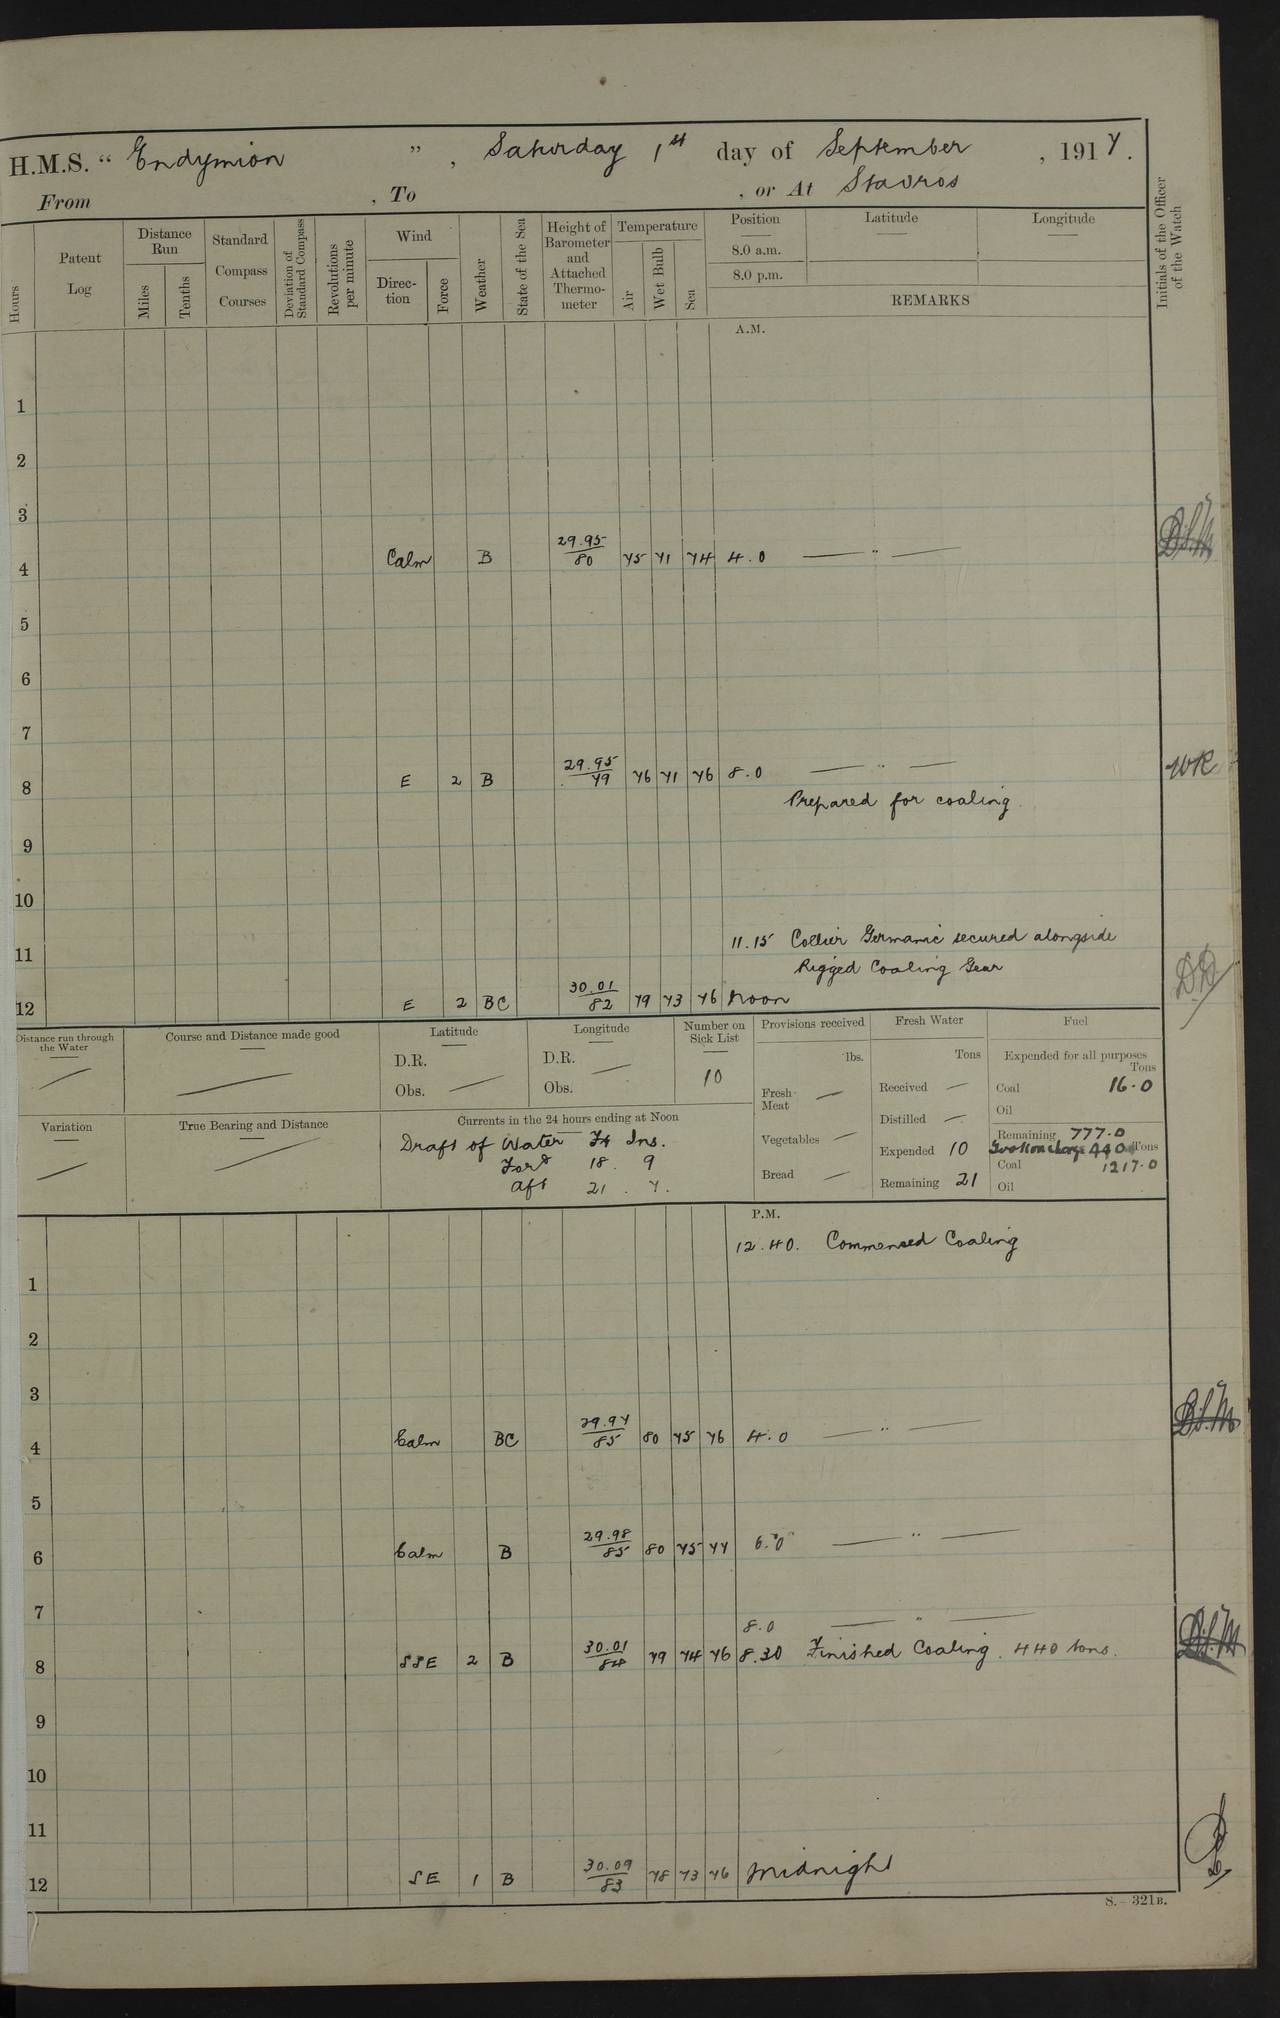 H.M.S. “ Endymion ” , Saturday 1st day of September , 1917 .
From , To , or At Stavros
Hours
Patent Log
Distance Run
Miles
Tenths
Standard Compass Courses
Deviation of Standard Compass
Revolutions per minute
Wind
Direc-tion
Force
Weather
State of the Sea
Height of Barometer and Attached Thermo-meter
Temperature
Air
Wet Bulb
Sea
Position
8.0 a.m.
8.0 p.m.
Latitude
Longitude
REMARKS
Initials of the Officer of the Watch
A.M.
1
2
3
4 Calm B 29.95/80 75 71 74 4.0 — " —
5
6
7
8 E 2 B 29.95/79 76 71 76 8.0 — " — WR
Prepared for coaling.
9
10
11 11.15 Collier Germanic secured alongside
Rigged Coaling Gear
12 E 2 BC 30.01/82 79 73 76 Noon
Distance run through the Water
Course and Distance made good
Latitude
D.R.
Obs. —
Longitude
D.R. —
Obs.
Number on Sick List
10
Provisions received
lbs.
Fresh Meat —
Vegetables —
Bread —
Fresh Water
Tons
Received —
Distilled —
Expended 10
Remaining 21
Fuel
Expended for all purposes
Tons
Coal 16.0
Oil
Remaining 777.0
440 Tons
Coal 1217.0
Oil
Variation
True Bearing and Distance
Currents in the 24 hours ending at Noon
Draft of Water Ft Ins.
Ford 18 . 9
Aft 21 . 7.
P.M.
12.40. Commenced Coaling
1
2
3
4 Calm BC 29.97/85 80 75 76 4.0 — " —
5
6 Calm B 29.98/85 80 75 77 6.0 — " —
7
8.0 — " —
8 SSE 2 B 30.01/84 79 74 76 8.30 Finished Coaling. 440 tons.
9
10
11
12 SE 1 B 30.09/83 78 73 76 Midnight
S.—321B.